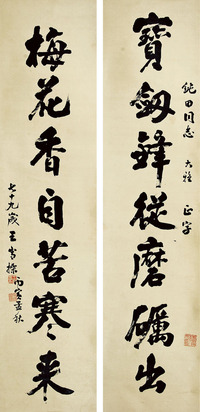 寶劔鋒從磨礪出
鈍田同志 大雅 正字
梅花香自苦寒来
七十九歲王
丙寅孟秋